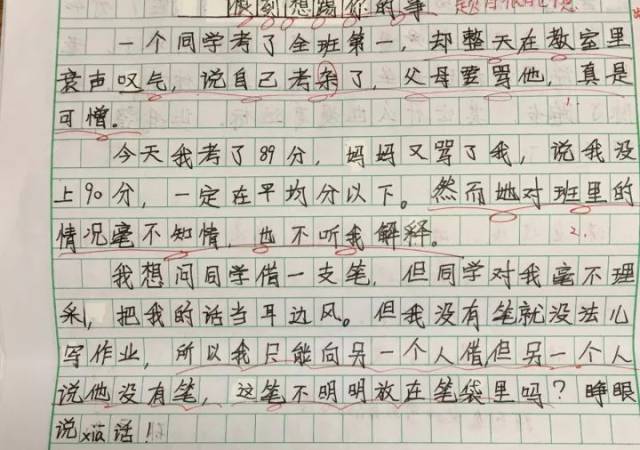 想踢你的事
一个同学考了全班第一，却整天在教室里
哀声叹气，说自己考杂了，父母要骂他，真是
可憎。
今天我考了89分，妈妈又骂了我，说我没
上90分，一定在平均分以下。然而她对班里的
情况毫不知情，也不听我解释。
我想问同学借一支笔，但同学对我毫不理
采，把我的话当耳边风。但我没有笔就没法儿
写作业，所以我只能向另一个人借，但另一个人
说他没有笔，这笔不明明放在笔袋里吗？睁眼
说xiā话！